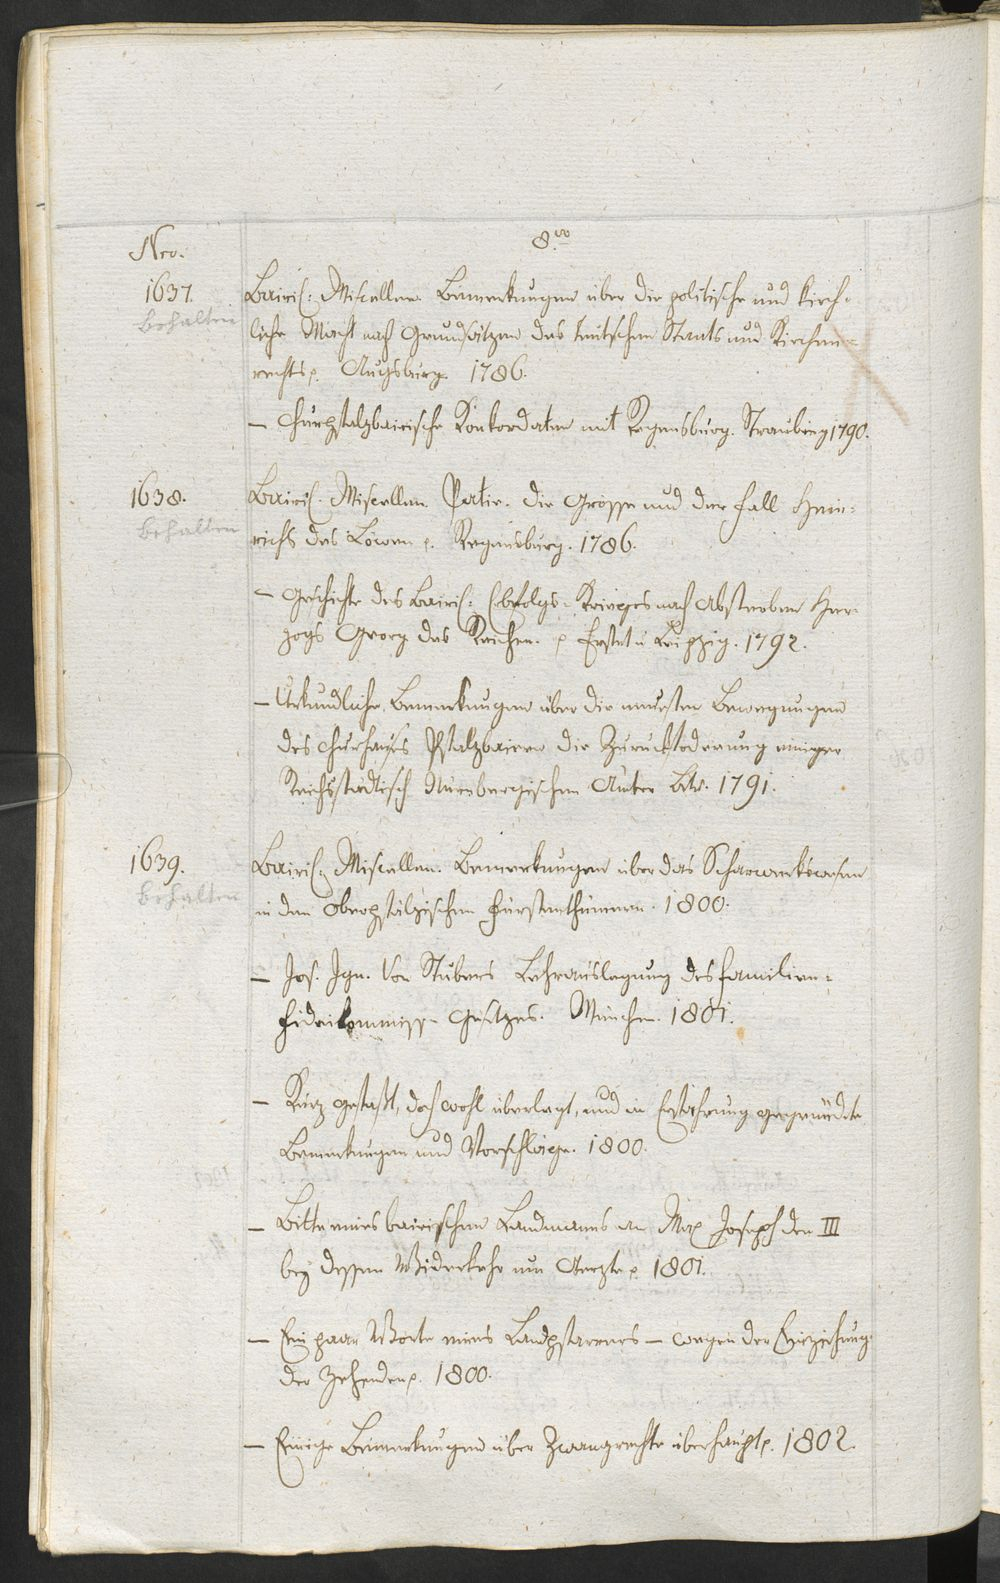 Nro. 8.vo
1637. Bairisch: Miscellen. Bemerkungen über die politische und kirch-
behalten
liche Macht nach Grundsätzen des teutschen Staats und Kirchen-
rechts p. Augsburg. 1786.
— Churpfalzbairische Konkordaten mit Regensburg. Straubing 1790.
1638. Bairisch. Miscellen. Die Grösse und der Fall Hein-
behalten
richs des Löwen p. Regensburg. 1786.
— Geschichte des Bairisch: Erbfolgs-Krieges nach Absterben Her-
zogs Georg des Reichen. p Leipzig. 1792.
— Urkundliche Bemerkungen über die neuesten Bewegungen
des Churhauses Pfalzbaiern die Zuruckfoderung einiger
Reichsstädtisch Nürnbergischen Ämter betr. 1791.
1639. Bairisch: Miscellen. Bemerkungen über das Scharwerkswesen
behalten
in den oberpfälzischen Fürstenthümern. 1800.
— Jos. Ign. Von Stubers Lehrauslegung des Familien-
Fideikommiss-Gesetzes. München. 1801.
— Kurz gefaßt, doch wohl überlegt, und in Erfahrung gegründete
Bemerkungen und Vorschläge. 1800.
— Bitte eines bairischen Landmanns an Max Joseph den III
bey dessen Widerkehr um Aerzte p. 1801.
— Ein paar Worte eines Landpfarrers — wegen der Einziehung
der Zehenden p. 1800.
— Einige Bemerkungen über Zwangrechte überhaupt p. 1802.